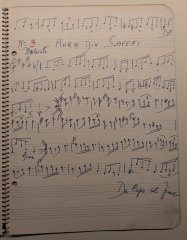 Nr. 3
HORA DIN
Moderato
Fine
Da Capo al Fine